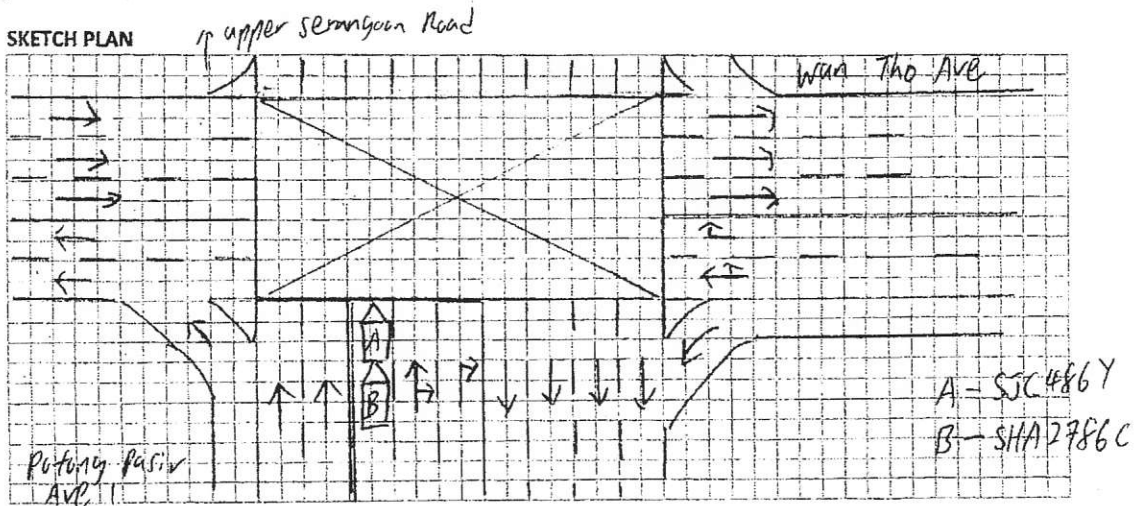 SKETCH PLAN
upper serangoon Road
Wan Tho Ave
A
B
A - SJC486Y
B - SHA2786C
Potong Pasir
Ave 1